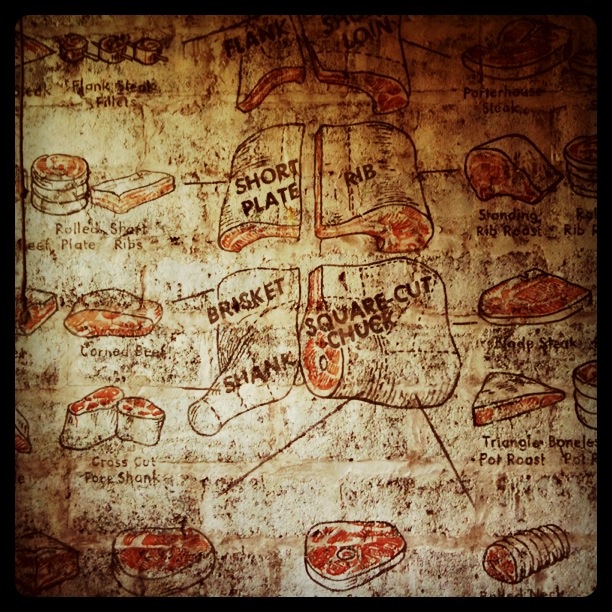 FLANK
SHORT
LOIN
Flank Steak
Fillets
Porterhouse
Steak
SHORT
PLATE
RIB
Rolled
Plate
Short
Ribs
Standing
Rib Roast
Rib R
BRISKET
SQUARE-CUT
CHUCK
SHANK
Corned Beef
Blade Steak
Cross Cut
Fore Shank
Triangle
Pot Roast
Boneles
Pot R
Rolled Neck